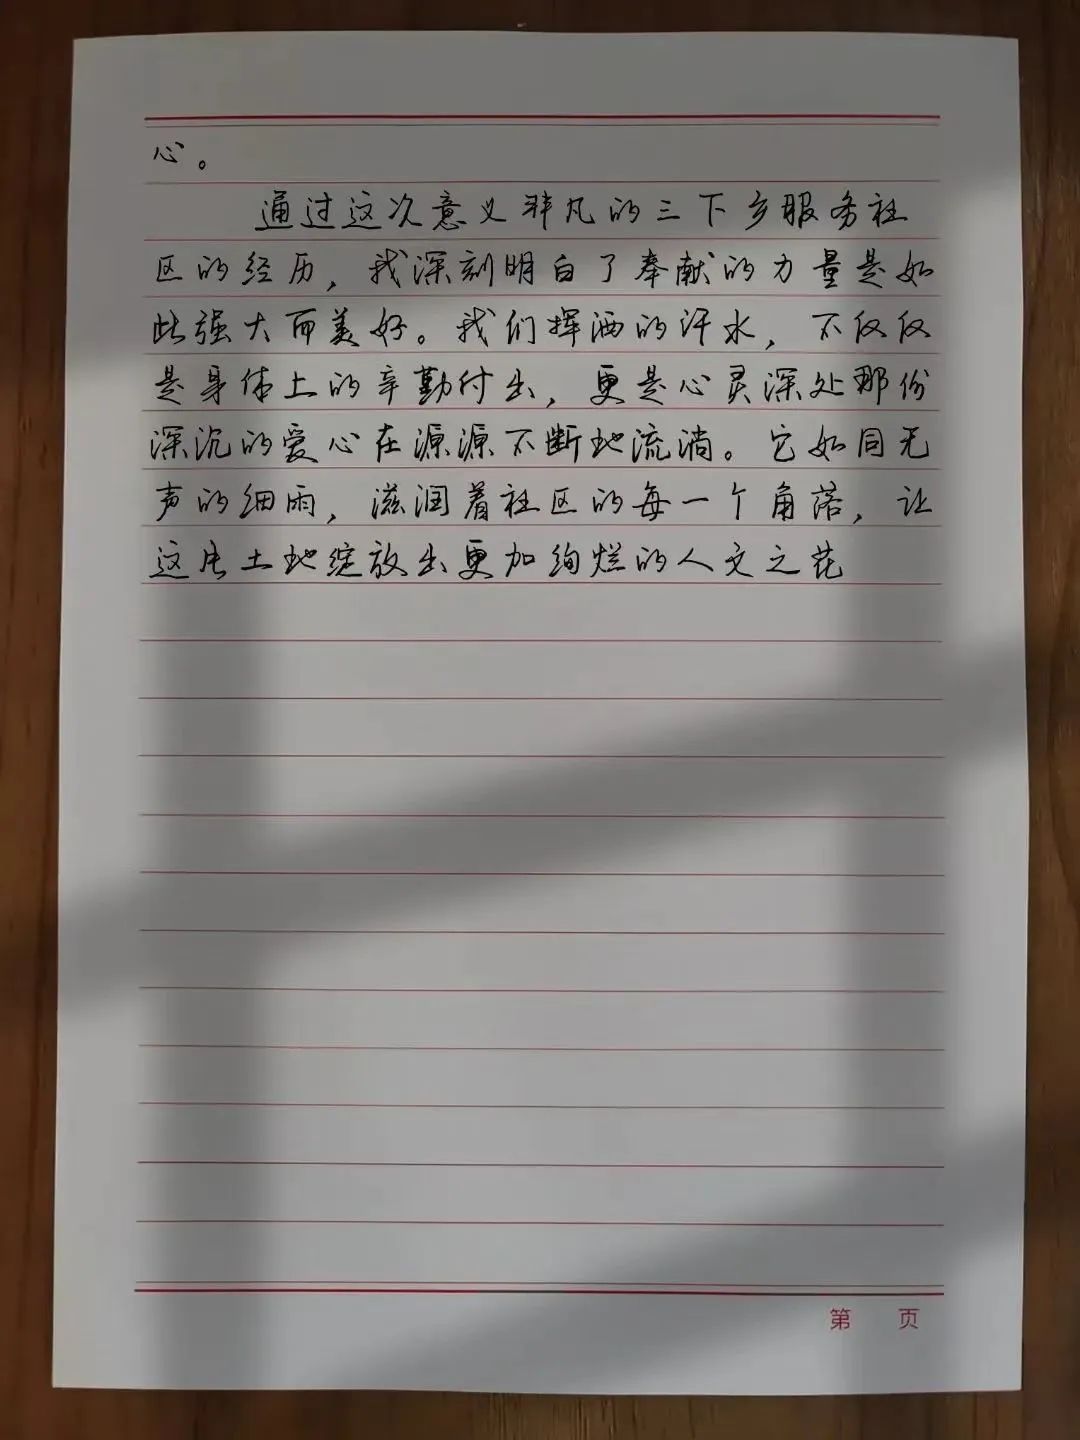 心。
通过这次意义非凡的三下乡服务社
区的经历，我深刻明白了奉献的力量是如
此强大而美好。我们挥洒的汗水，不仅仅
是身体上的辛勤付出，更是心灵深处那份
深沉的爱心在源源不断地流淌。它如同无
声的细雨，滋润着社区的每一个角落，让
这片土地绽放出更加绚烂的人文之花
第 页